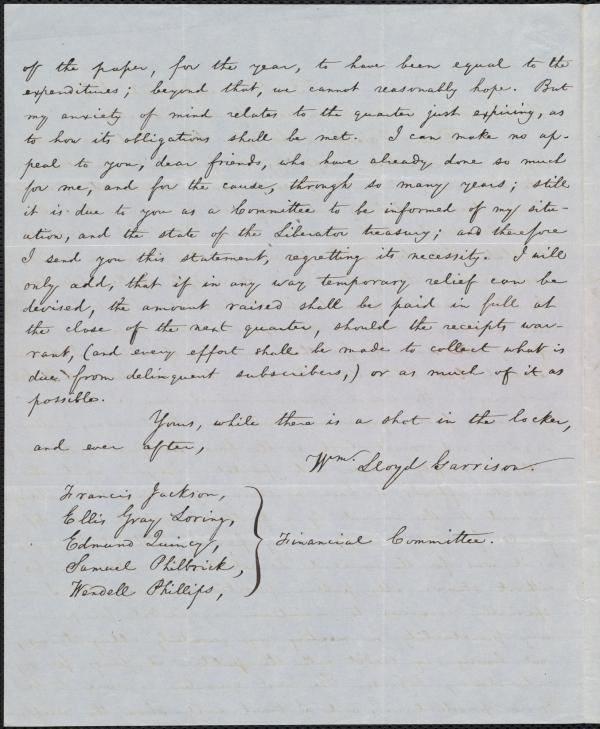 of the paper, for the year, to have been equal to the
expenditures; beyond that, we cannot reasonably hope. But
my anxiety of mind relates to the quarter just expiring, as
to how its obligations shall be met. I can make no ap-
peal to you, dear friends, who have already done so much
for me, and for the cause, through so many years; still
it is due to you as a Committee to be informed of my situ-
ation, and the state of the Liberator treasury; and therefore
I send you this statement, regretting its necessity. I will
only add, that if in any way temporary relief can be
devised, the amount raised shall be paid in full at
the close of the next quarter, should the receipts war-
rant, (and every effort shall be made to collect what is
due from delinquent subscribers,) or as much of it as
possible.
Yours, while there is a shot in the locker,
and ever after,
Wm. Lloyd Garrison.
Francis Jackson,
Ellis Gray Loring,
Edmund Quincy,
Samuel Philbrick,
Wendell Phillips,
Financial Committee.